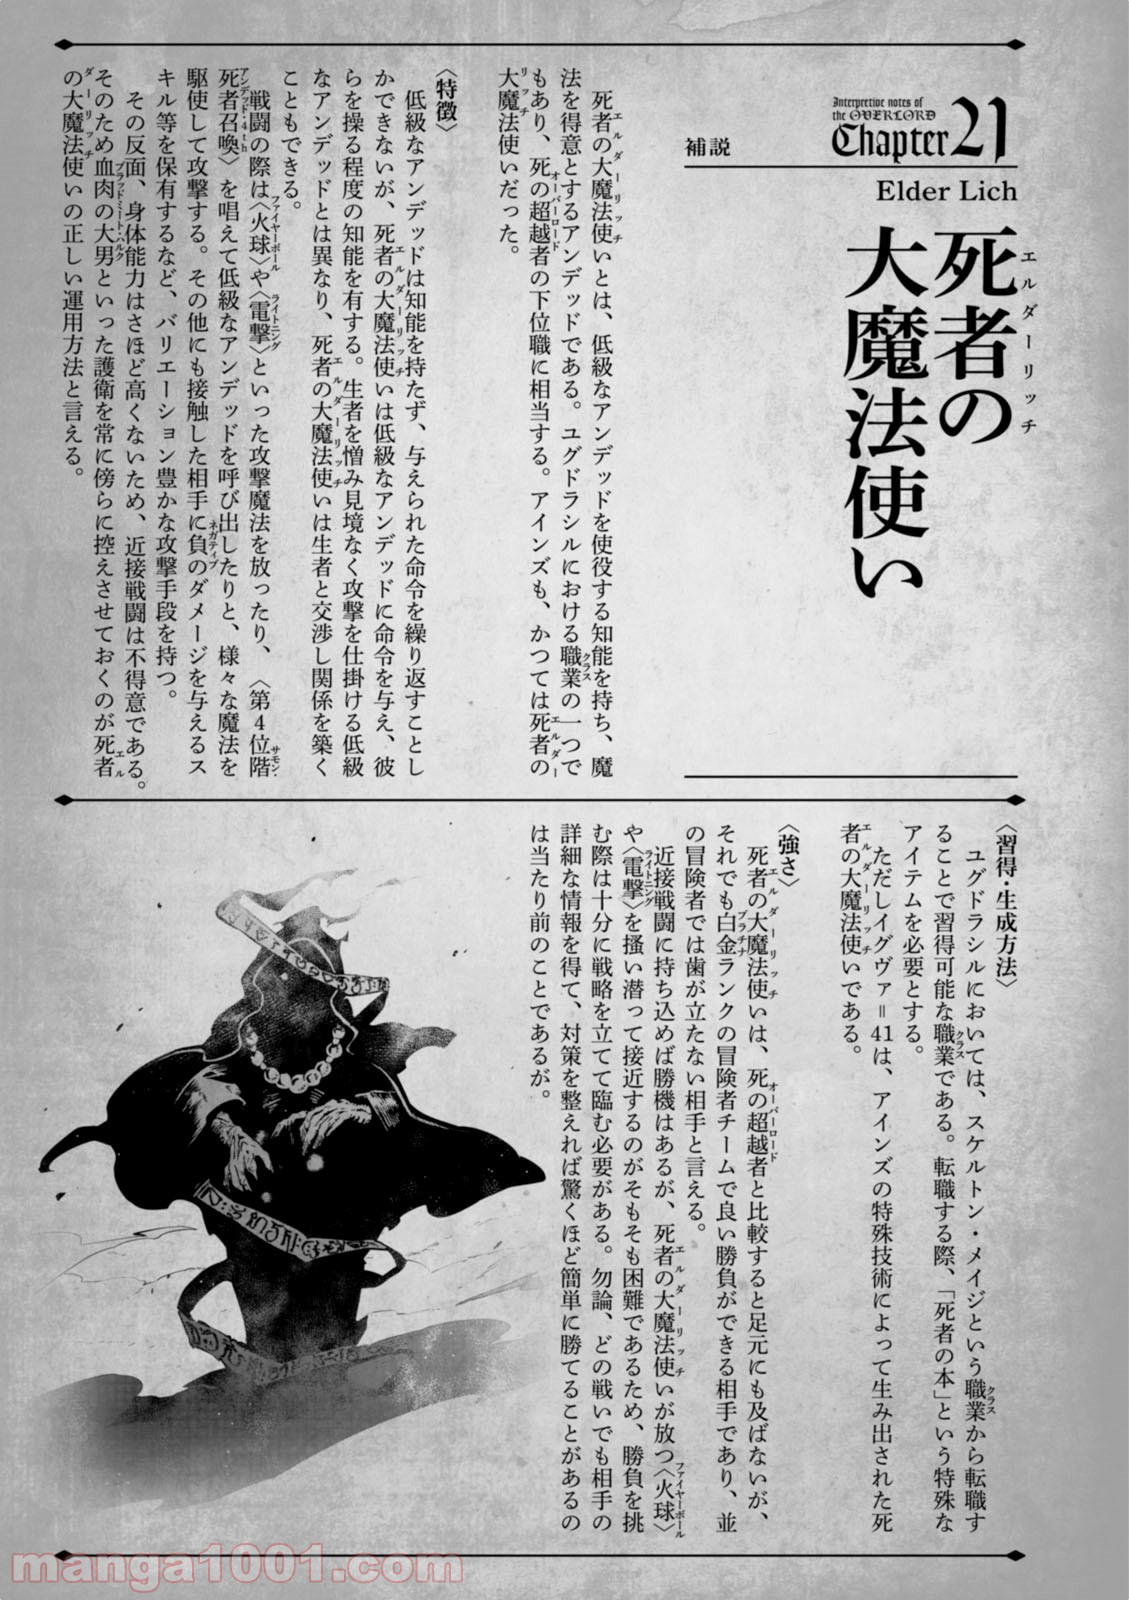 Interpretive notes of
the OVERLORD
Chapter 21
補説
Elder Lich
死者の
エルダーリッチ
大魔法使い
死者の大魔法使いとは、低級なアンデッドを使役する知能を持ち、魔
エルダーリッチ
法を得意とするアンデッドである。ユグドラシルにおける職業の一つで
クラス
もあり、死の超越者の下位職に相当する。アインズも、かつては死者の
オーバーロード
エルダー
大魔法使いだった。
リッチ
〈特徴〉
低級なアンデッドは知能を持たず、与えられた命令を繰り返すことし
かできないが、死者の大魔法使いは低級なアンデッドに命令を与え、彼
エルダーリッチ
らを操る程度の知能を有する。生者を憎み見境なく攻撃を仕掛ける低級
なアンデッドとは異なり、死者の大魔法使いは生者と交渉し関係を築く
エルダーリッチ
こともできる。
戦闘の際は〈火球〉や〈電撃〉といった攻撃魔法を放ったり、〈第4位階
ファイヤーボール
ライトニング
サモン・
死者召喚〉を唱えて低級なアンデッドを呼び出したりと、様々な魔法を
アンデッド・4th
駆使して攻撃する。その他にも接触した相手に負のダメージを与えるス
ネガティブ
キル等を保有するなど、バリエーション豊かな攻撃手段を持つ。
その反面、身体能力はさほど高くないため、近接戦闘は不得意である。
そのため血肉の大男といった護衛を常に傍らに控えさせておくのが死者
ブラッドミート・ハルク
エル
の大魔法使いの正しい運用方法と言える。
ダーリッチ
〈習得・生成方法〉
ユグドラシルにおいては、スケルトン・メイジという職業から転職す
クラス
ることで習得可能な職業である。転職する際、「死者の本」という特殊な
クラス
アイテムを必要とする。
ただしイグヴァ=41は、アインズの特殊技術によって生み出された死
者の大魔法使いである。
エルダーリッチ
〈強さ〉
死者の大魔法使いは、死の超越者と比較すると足元にも及ばないが、
エルダーリッチ
オーバーロード
それでも白金ランクの冒険者チームで良い勝負ができる相手であり、並
プラチナ
の冒険者では歯が立たない相手と言える。
近接戦闘に持ち込めば勝機はあるが、死者の大魔法使いが放つ〈火球〉
エルダーリッチ
ファイヤーボール
や〈電撃〉を掻い潜って接近するのがそもそも困難であるため、勝負を挑
ライトニング
む際は十分に戦略を立てて臨む必要がある。勿論、どの戦いでも相手の
詳細な情報を得て、対策を整えれば驚くほど簡単に勝てることがあるの
は当たり前のことであるが。
manga1001.com